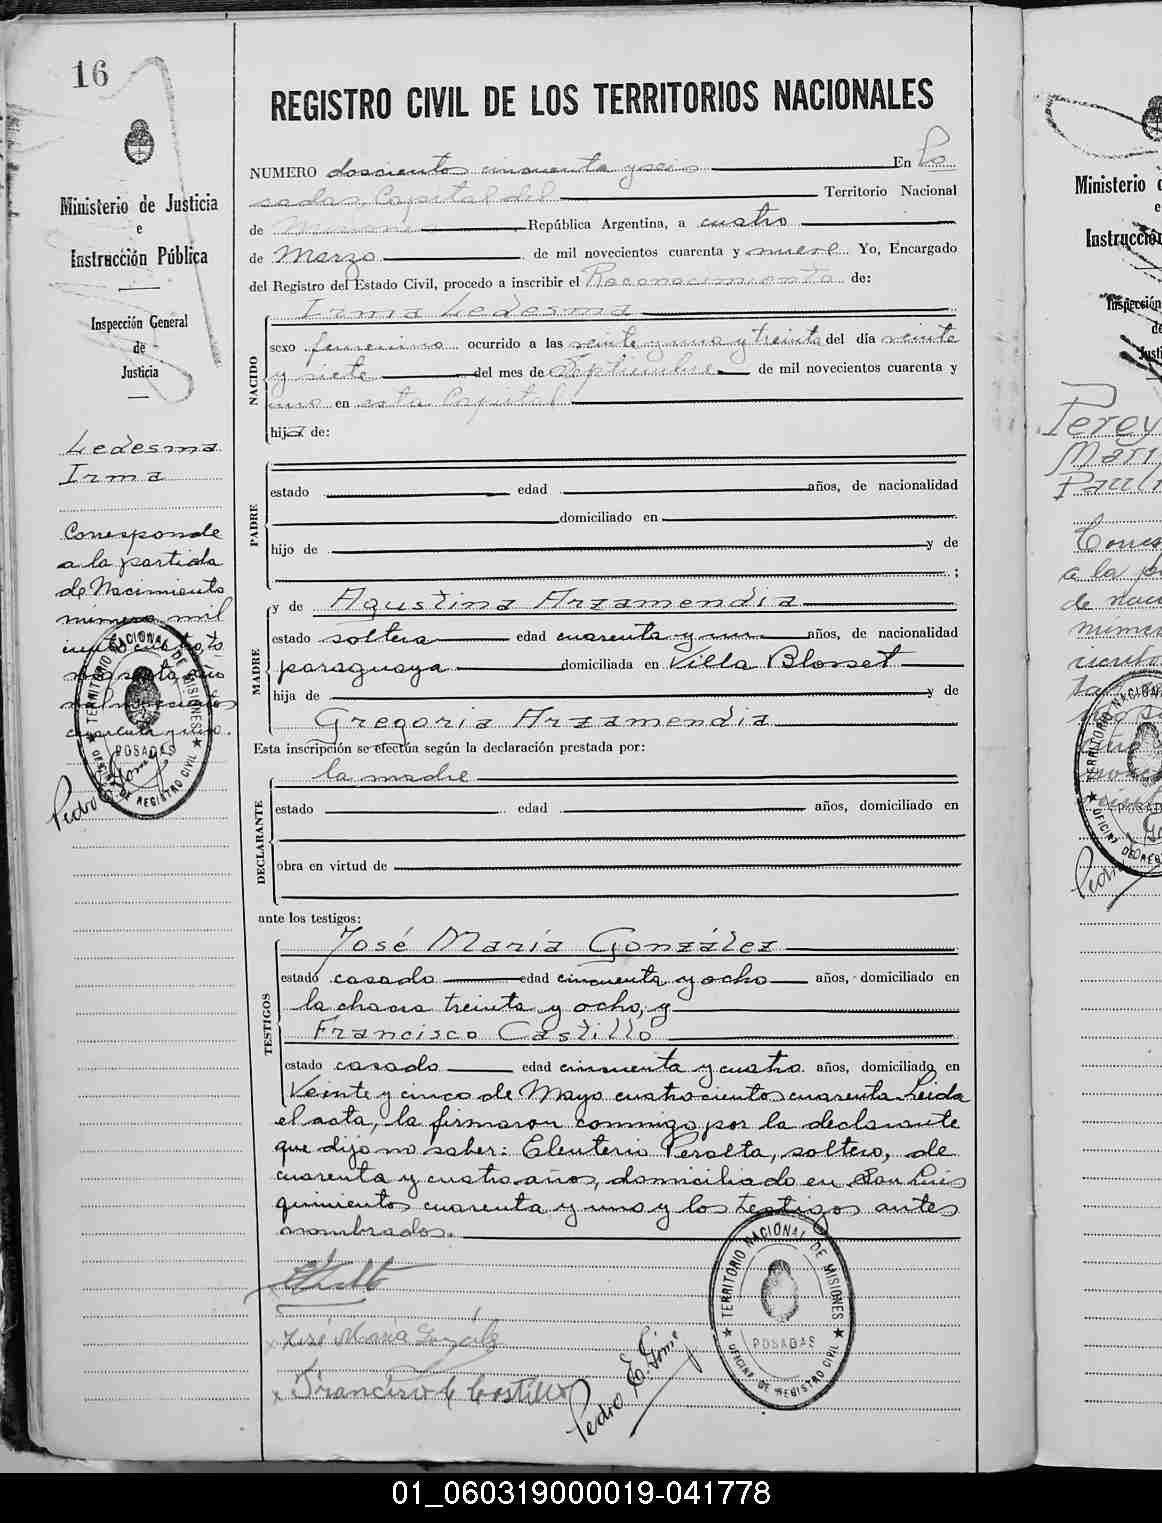 16
Ministerio de Justicia
e
Instrucción Pública
Inspección General
de
Justicia
Ledesma
Irma
Corresponde
a la partida
de Nacimiento
número mil
mil novecientos
cuarenta y uno.
TERRITORIO NACIONAL DE MISIONES
POSADAS
OFICINA DE REGISTRO CIVIL
Pedro E. Gómez
REGISTRO CIVIL DE LOS TERRITORIOS NACIONALES
NUMERO doscientos cincuenta y seis En Po
sadas, Capital del Territorio Nacional
de Misiones, República Argentina, a cuatro
de Marzo de mil novecientos cuarenta y nueve Yo, Encargado
del Registro del Estado Civil, procedo a inscribir el Reconocimiento de:
NACIDO
Irma Ledesma
sexo femenino ocurrido a las veinte y una y treinta del día veinte
y siete del mes de Septiembre de mil novecientos cuarenta y
uno en esta Capital
hija de:
PADRE
estado edad años, de nacionalidad
domiciliado en
hijo de y de
;
MADRE
y de Agustina Arzamendia
estado soltera edad cuarenta y un años, de nacionalidad
paraguaya domiciliada en Villa Blosset
hija de y de
Gregoria Arzamendia
Esta inscripción se efectúa según la declaración prestada por:
DECLARANTE
la madre
estado edad años, domiciliado en
obra en virtud de
ante los testigos:
TESTIGOS
José María González
estado casado edad cincuenta y ocho años, domiciliado en
la chacra treinta y ocho, y
Francisco Castillo
estado casado edad cincuenta y cuatro años, domiciliado en
Veinte y cinco de Mayo cuatrocientos cuarenta. Leida
el acta, la firmaron conmigo, por la declarante
que dijo no saber: Eleuterio Peralta, soltero, de
cuarenta y cuatro años, domiciliado en San Luis
quinientos cuarenta y uno y los testigos antes
nombrados.
José María González
Francisco Castillo
Pedro E. Gómez
TERRITORIO NACIONAL DE MISIONES
POSADAS
OFICINA DE REGISTRO CIVIL
Ministerio d
e
Instrucción
Inspección
de
Justi
Perey
Corres
a la pa
de naci
númer
TERRITORIO NACIONAL
POSADA
OFICINA DE REGIS
Pedro
01_060319000019-041778